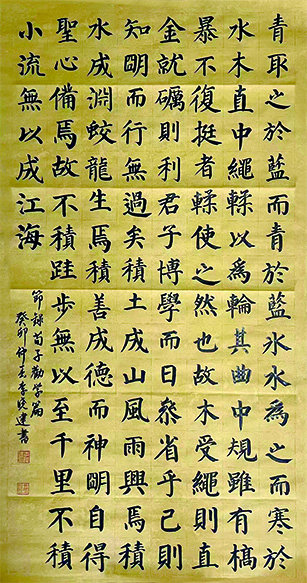 青取之於藍而青於藍冰水為之而寒於
水木直中繩輮以為輪其曲中規雖有槁
暴不復挺者輮使之然也故木受繩則直
金就礪則利君子博學而日參省乎己則
知明而行無過矣積土成山風雨興焉積
水成淵蛟龍生焉積善成德而神明自得
聖心備焉故不積跬步無以至千里不積
小流無以成江海
節錄荀子勸学篇
癸卯仲春李曉建書